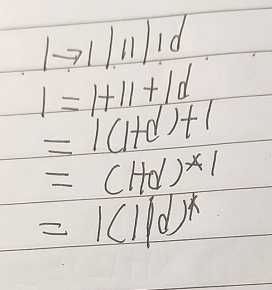 l→l|ll|ld
l=l+ll+ld
=l(l+d)+l
=(l+d)*l
=l(l|d)*